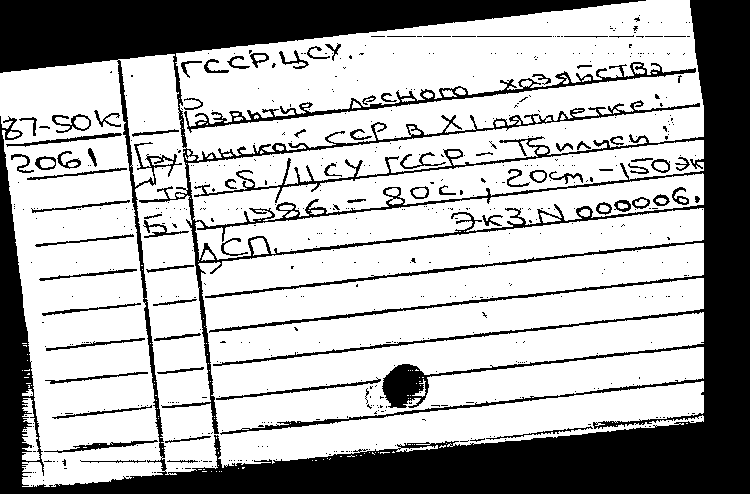 ГССР, ЦСУ.
Развитие лесного хозяйства
87-50к
Грузинской ССР в XI пятилетке:
2061
Стат. сб. / ЦСУ ГССР. – Тбилиси:
Б. и., 1986. – 80 с.; 20 см. – 150 эк
Экз. N 000006.
ДСП.